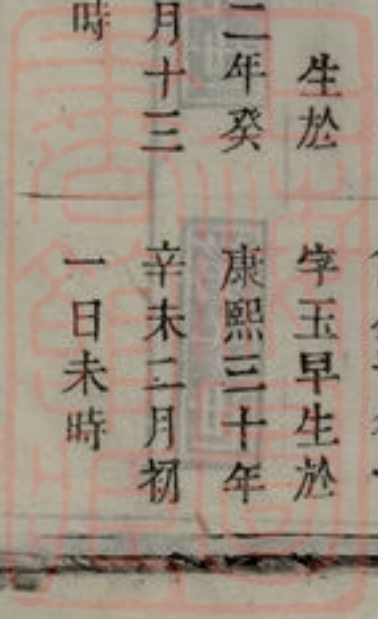 生於
二年癸
月十三
時
字玉早生於
康熙三十年
辛未二月初
一日未時